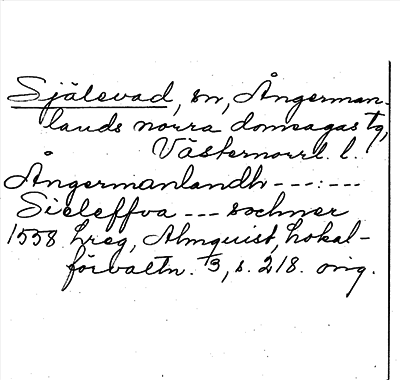 Själevad, sn, Ångerman-
lands norra domsagas tg,
Västernorrl. l.
Ångermanlandh ---:---
Sieleffva --- sochner
1558 hreg, Almquist, Lokal-
förvaltn. 3, s. 218. orig.